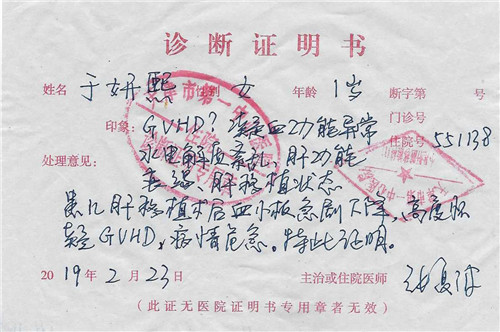 诊断证明书
姓名 于妍熙 性别 女 年龄 1岁 断字第 号
门诊号
印象: GVHD? 凝血功能异常 住院号 551138
水电解质紊乱, 肝功能
处理意见:
衰竭 肝移植状态
患儿肝移植术后血小板急剧下降, 高度怀
疑GVHD, 病情危急。特此证明。
2019年2月23日 主治或住院医师
(此证无医院证明书专用章者无效)